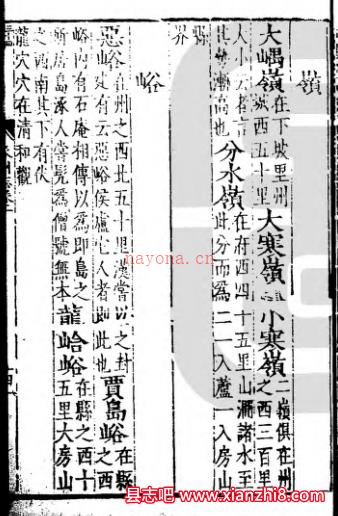 嶺
大嵎嶺在下坡里州
城西五十里大寒嶺 小寒嶺二嶺俱在州
之西三百里
大小云者言
此勢漸高也分水嶺在府西四十五里山澗諸水至
此分而爲二一入蘆一入房山
縣
界
峪
惡峪在州之西北五十里漢嘗以之封
有云惡峪侯盧它人者即此也賈島峪在縣
之西
峪内有石庵相傳以爲即島之
居島涿人嘗髡爲僧號無本龍峪在縣之西十
五里大房山
之西南其下有伏
龍穴穴在清和觀
nayona.cn
县志吧-www.xianzhi8.com